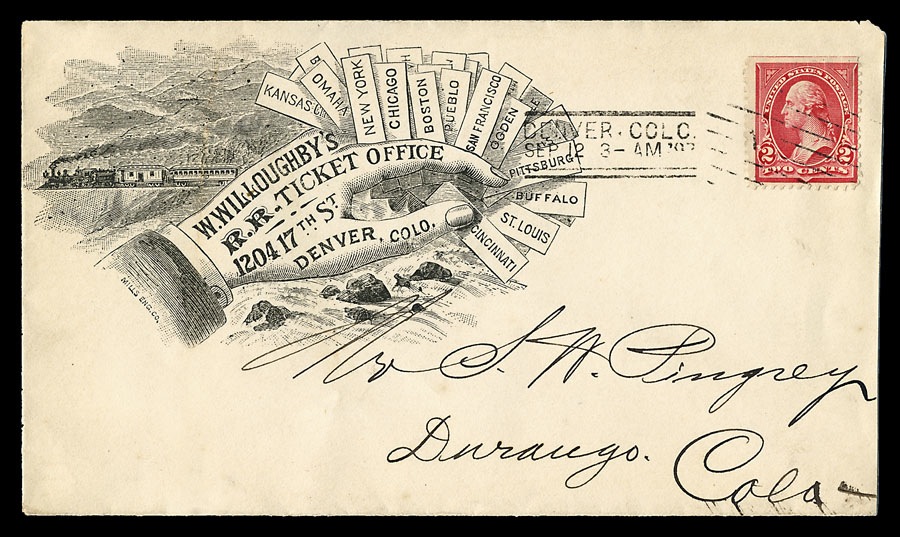 KANSAS-CY
5 OMAHA
NEW YORK
CHICAGO
BOSTON
PUEBLO
SAN FRANCISCO
OGDEN
PITTSBURGT
BUFFALO
ST. LOUIS
CINCINNATI
W. WILLOUGHBY'S
R.R. TICKET OFFICE
1204 17TH ST.
DENVER, COLO.
MILLS ENG. CO.
DENVER, COLO.
SEP 12 3-AM '97
UNITED STATES POSTAGE
2 2
TWO CENTS
Mr S. W. Pingrey
Durango.
Colo